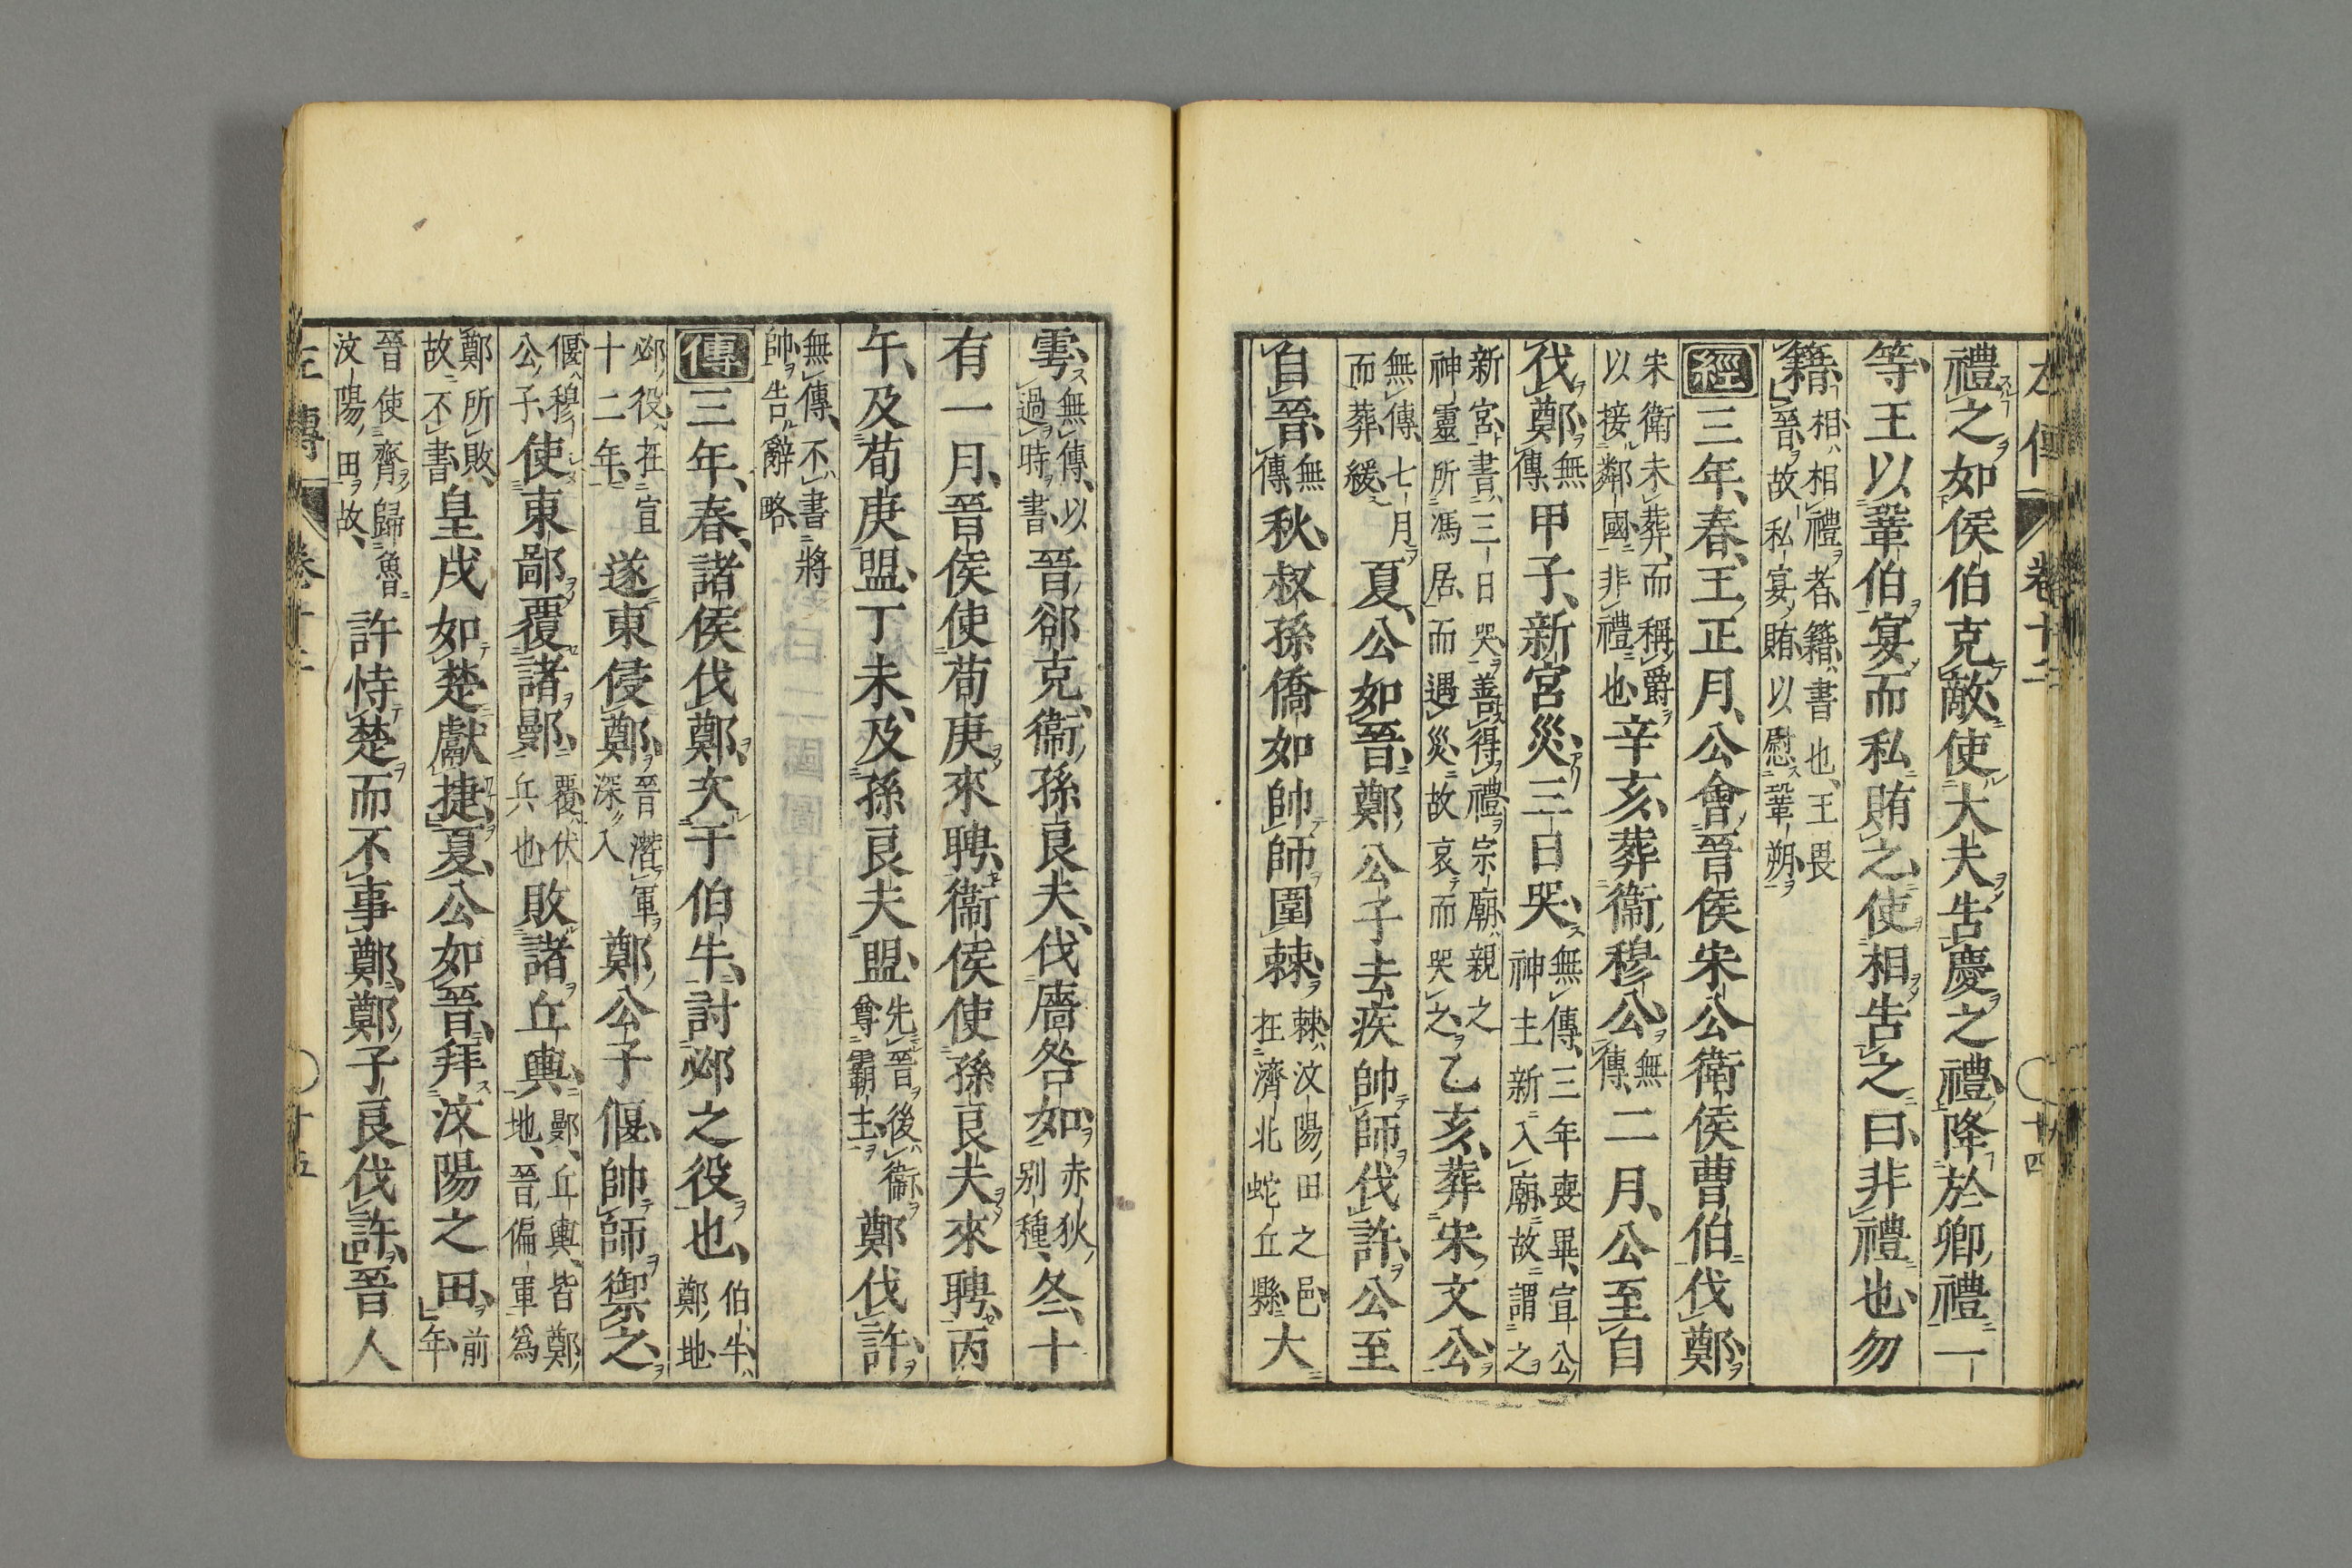 左傳 卷十二 十四
禮之如侯伯克敵使大夫告慶之禮降於卿禮一
等王以鞏伯宴而私賄之使相告之曰非禮也勿
籍相相禮者籍書也王畏晉故私宴賄以慰鞏朔
經三年春王正月公會晉侯宋公衛侯曹伯伐鄭
宋衛未葬而稱爵以接鄰國非禮也辛亥葬衛穆公無傳二月公至自
伐鄭無傳甲子新宮災三日哭無傳三年喪畢宣公神主新入廟故謂之
新宮書三日哭善得禮宗廟親之神靈所馮居而遇災故哀而哭之乙亥葬宋文公
無傳七月而葬緩夏公如晉鄭公子去疾帥師伐許公至
自晉無傳秋叔孫僑如帥師圍棘棘汶陽田之邑在濟北蛇丘縣大
雩無傳以過時書晉郤克衞孫良夫伐廧咎如赤狄別種冬十
有一月晉侯使荀庚來聘衞侯使孫良夫來聘丙
午及荀庚盟丁未及孫良夫盟先晉後衞尊霸主鄭伐許
無傳不書將帥告辭略
傳三年春諸侯伐鄭次于伯牛討邲之役也伯牛鄭地
邲役在宣十二年遂東侵鄭晉潛軍深入鄭公子偃帥師禦之
偃穆公子使東鄙覆諸鄤覆伏兵也敗諸丘輿鄤丘輿皆鄭地晉偏軍為
鄭所敗故不書皇戌如楚獻捷夏公如晉拜汶陽之田前年
晉使齊歸魯汶陽田故許恃楚而不事鄭鄭子良伐許晉人
左傳 卷十二 十五